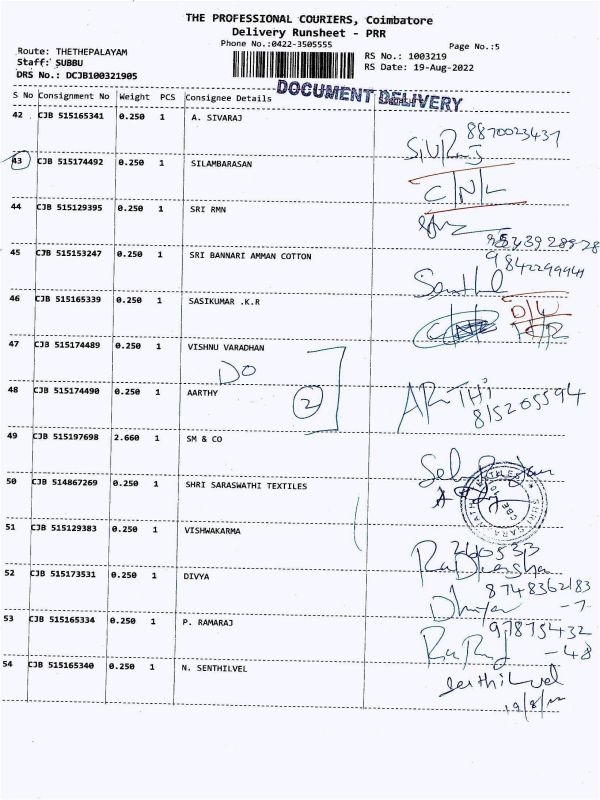 THE PROFESSIONAL COURIERS, Coimbatore
Delivery Runsheet - PRR
Phone No.:0422-3505555
Page No.:5
Route: THETHEPALAYAM
Staff: SUBBU
DRS No.: DCJB100321905
RS No.: 1003219
RS Date: 19-Aug-2022
DOCUMENT DELIVERY
S No Consignment No Weight PCS Consignee Details Signature
42 CJB 515165341 0.250 1 A. SIVARAJ
8870023437
43 CJB 515174492 0.250 1 SILAMBARASAN
C/N/L
44 CJB 515129395 0.250 1 SRI RMN
45 CJB 515153247 0.250 1 SRI BANNARI AMMAN COTTON
Senthil
46 CJB 515165339 0.250 1 SASIKUMAR .K.R
D/L
47 CJB 515174489 0.250 1 VISHNU VARADHAN
DO
2
48 CJB 515174490 0.250 1 AARTHY
ARTHI
815205594
49 CJB 515197698 2.660 1 SM & CO
50 CJB 514867269 0.250 1 SHRI SARASWATHI TEXTILES
51 CJB 515129383 0.250 1 VISHWAKARMA
52 CJB 515173531 0.250 1 DIVYA
8748362183
-7
53 CJB 515165334 0.250 1 P. RAMARAJ
97875432
-48
54 CJB 515165340 0.250 1 N. SENTHILVEL
SenthilVel
19/8/22